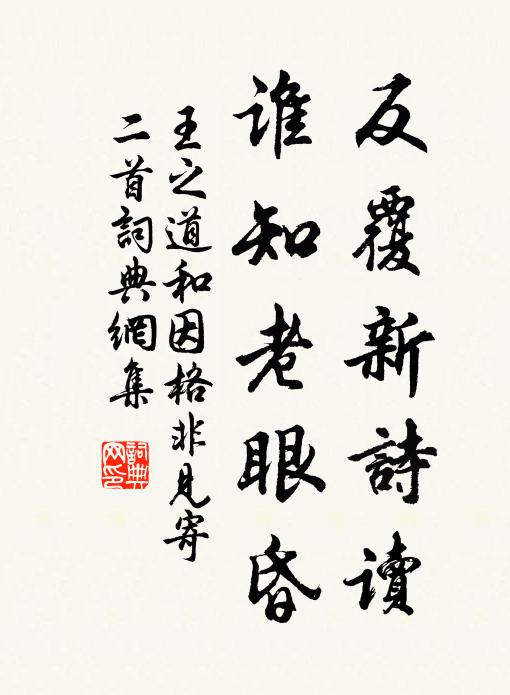 反覆新詩讀
誰知老眼昏
王之道和因格非見寄
二首詞典網集
詞典
网印